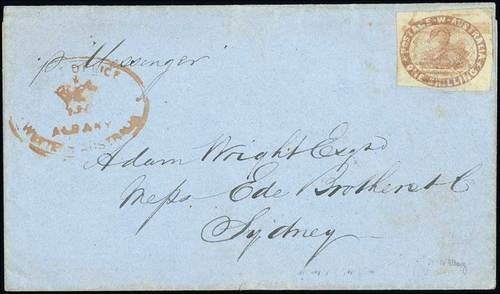 pr Messenger
POSTAGE W. AUSTRALIA
ONE SHILLING
OFFICE
ALBANY
WESTERN AUSTRALIA
Adam Wright Esqre
Messrs Ede Brothers & Co
Sydney